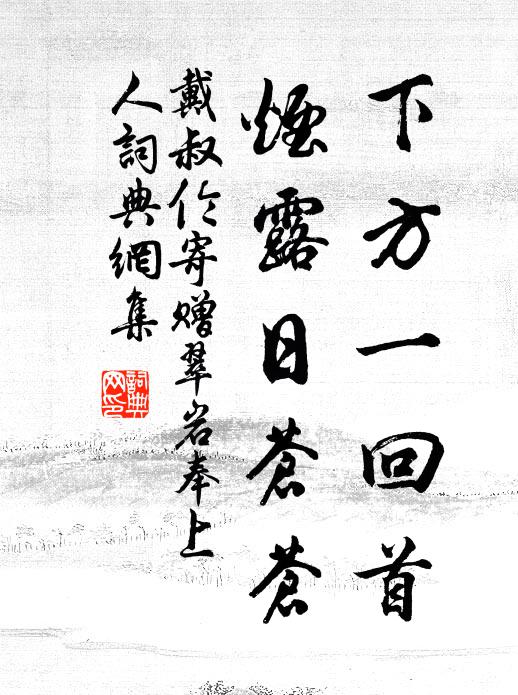 下方一回首
煙露日蒼蒼
戴叔伦寄赠翠岩奉上
人詞典網集
詞典网印